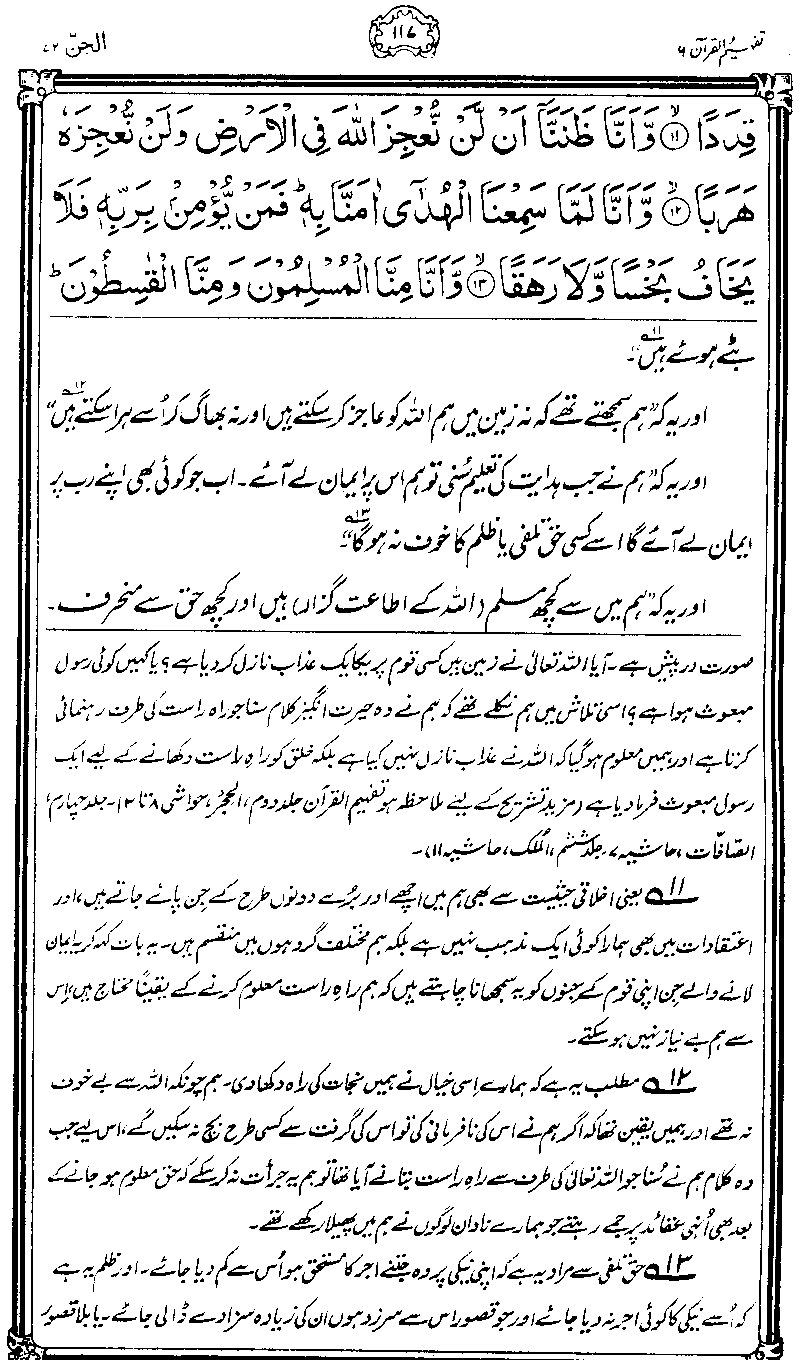 تفہیم القرآن ۶
۱۱۷
الجنّ ۷۲
قِدَدًا ﴿۱۱﴾ وَّاَنَّا ظَنَنَّاۤ اَنْ لَّنْ نُّعْجِزَ اللّٰهَ فِی الْاَرْضِ وَلَنْ نُّعْجِزَهٗ
هَرَبًا ﴿۱۲﴾ وَّاَنَّا لَمَّا سَمِعْنَا الْهُدٰۤی اٰمَنَّا بِهٖ ؕ فَمَنْ یُّؤْمِنْۢ بِرَبِّهٖ فَلَا
یَخَافُ بَخْسًا وَّلَا رَهَقًا ﴿۱۳﴾ وَّاَنَّا مِنَّا الْمُسْلِمُوْنَ وَمِنَّا الْقٰسِطُوْنَ ؕ
بٹے ہوئے ہیں۱۱“۔
اور یہ کہ ”ہم سمجھتے تھے کہ نہ زمین میں ہم اللہ کو عاجز کر سکتے ہیں اور نہ بھاگ کر اُسے ہرا سکتے ہیں۱۲“
اور یہ کہ ”ہم نے جب ہدایت کی تعلیم سُنی تو ہم اس پر ایمان لے آئے۔ اب جو کوئی بھی اپنے رب پر
ایمان لے آئے گا اسے کسی حق تلفی یا ظلم کا خوف نہ ہوگا۱۳“۔
اور یہ کہ ”ہم میں سے کچھ مسلم (اللہ کے اطاعت گزار) ہیں اور کچھ حق سے منحرف۔
صورت درپیش ہے۔ آیا اللہ تعالیٰ نے زمین میں کسی قوم پر یکایک عذاب نازل کر دیا ہے؟ یا کہیں کوئی رسول
مبعوث ہوا ہے؟ اسی تلاش میں ہم نکلے تھے کہ ہم نے وہ حیرت انگیز کلام سنا جو راہ راست کی طرف رہنمائی
کرتا ہے اور ہمیں معلوم ہو گیا کہ اللہ نے عذاب نازل نہیں کیا ہے بلکہ خلق کو راہ راست دکھانے کے لیے ایک
رسول مبعوث فرما دیا ہے (مزید تشریح کے لیے ملاحظہ ہو تفہیم القرآن جلد دوم، الحجر، حواشی ۸ تا ۱۲۔ جلد چہارم،
الصّافّات، حاشیہ ۷، جلد ششم، الملک، حاشیہ ۱۱)۔
۱۱ یعنی اخلاقی حیثیت سے بھی ہم میں اچھے اور بُرے دونوں طرح کے جن پائے جاتے ہیں، اور
اعتقادات میں بھی ہمارا کوئی ایک مذہب نہیں ہے بلکہ ہم مختلف گروہوں میں منقسم ہیں۔ یہ بات کہہ کر یہ ایمان
لانے والے جن اپنی قوم کے جنوں کو یہ سمجھانا چاہتے ہیں کہ ہم راہِ راست معلوم کرنے کے یقیناً محتاج ہیں، اِس
سے ہم بے نیاز نہیں ہو سکتے۔
۱۲ مطلب یہ ہے کہ ہمارے اِسی خیال نے ہمیں نجات کی راہ دکھا دی۔ ہم چونکہ اللہ سے بے خوف
نہ تھے اور ہمیں یقین تھا کہ اگر ہم نے اس کی نافرمانی کی تو اس کی گرفت سے کسی طرح بچ نہ سکیں گے، اس لیے جب
وہ کلام ہم نے سُنا جو اللہ تعالیٰ کی طرف سے راہِ راست بتانے آیا تھا تو ہم یہ جرأت نہ کر سکے کہ حق معلوم ہو جانے کے
بعد بھی اُنہی عقائد پر جمے رہتے جو ہمارے نادان لوگوں نے ہم میں پھیلا رکھے تھے۔
۱۳ حق تلفی سے مراد یہ ہے کہ اپنی نیکی پر وہ جتنے اجر کا مستحق ہو اُس سے کم دیا جائے۔ اور ظلم یہ ہے
کہ اُسے نیکی کا کوئی اجر نہ دیا جائے اور جو قصور اس سے سرزد ہوں ان کی زیادہ سزا دے ڈالی جائے۔ یا بلا قصور